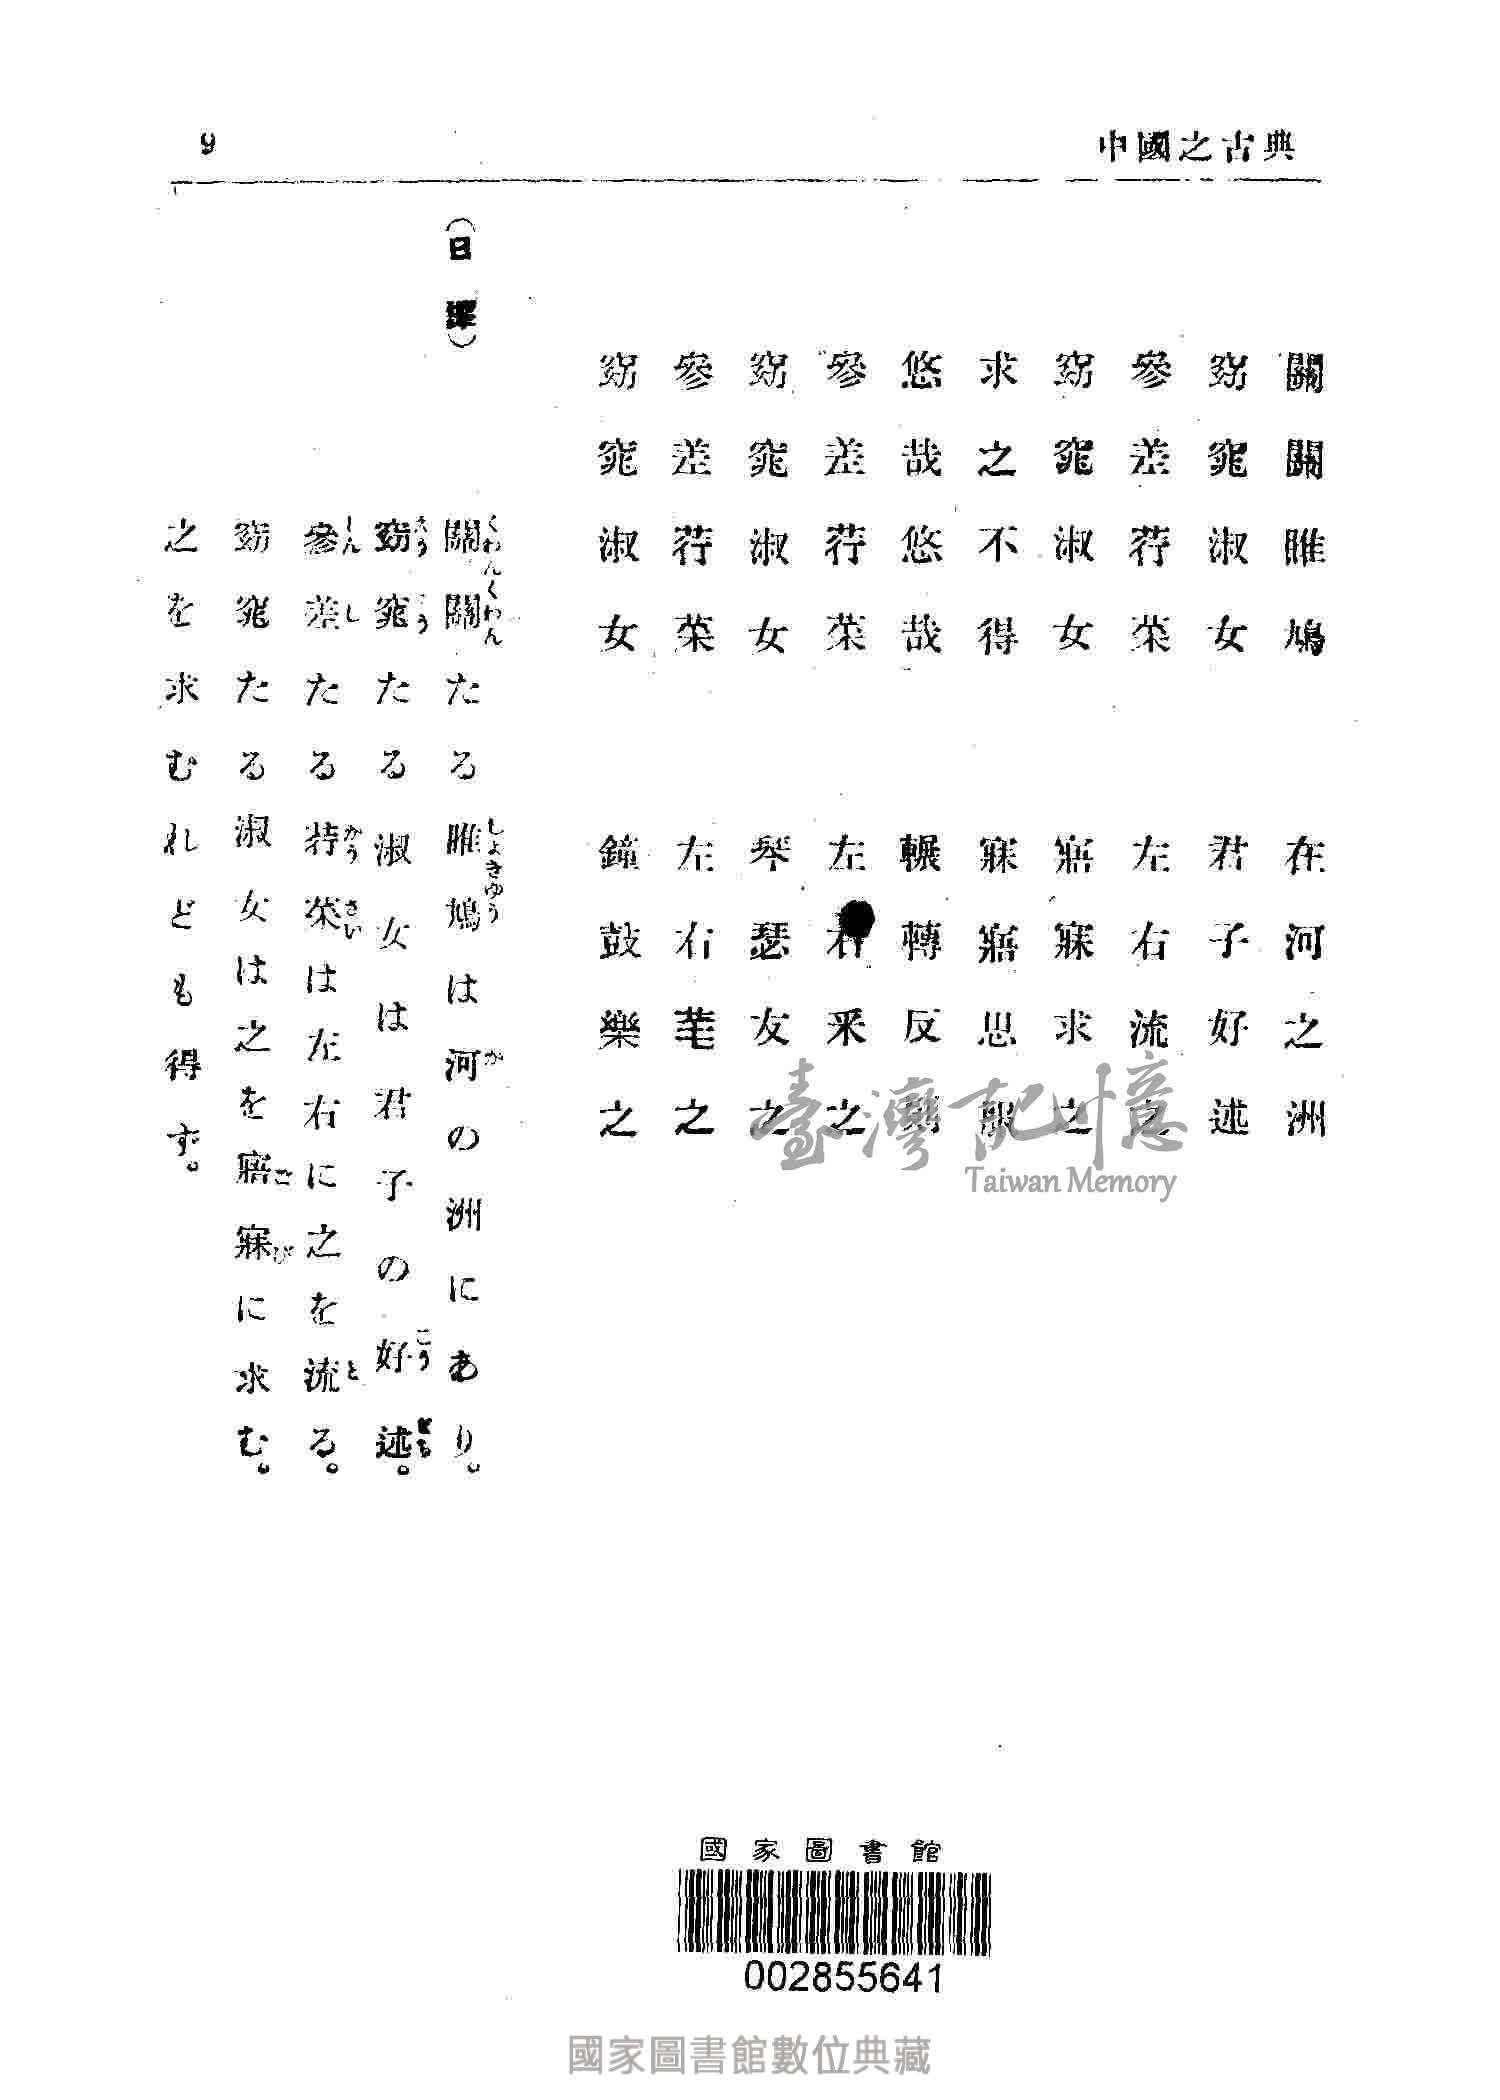 中國之古典
9
關關雎鳩　在河之洲
窈窕淑女　君子好逑
參差荇菜　左右流之
窈窕淑女　寤寐求之
求之不得　寐寤思服
悠哉悠哉　輾轉反側
參差荇菜　左右采之
窈窕淑女　琴瑟友之
參差荇菜　左右芼之
窈窕淑女　鐘鼓樂之
(日譯)
關關たる雎鳩は河の洲にあり。
くわんくわん　しょきゆう　が
窈窕たる淑女は君子の好逑。
こう
參差たる荇菜は左右に之を流る。
しんし　かうさい　と
窈窕たる淑女は之を寤寐に求む。
ごび
之を求むれども得ず。
臺灣記憶
Taiwan Memory
國家圖書館
002855641
國家圖書館數位典藏